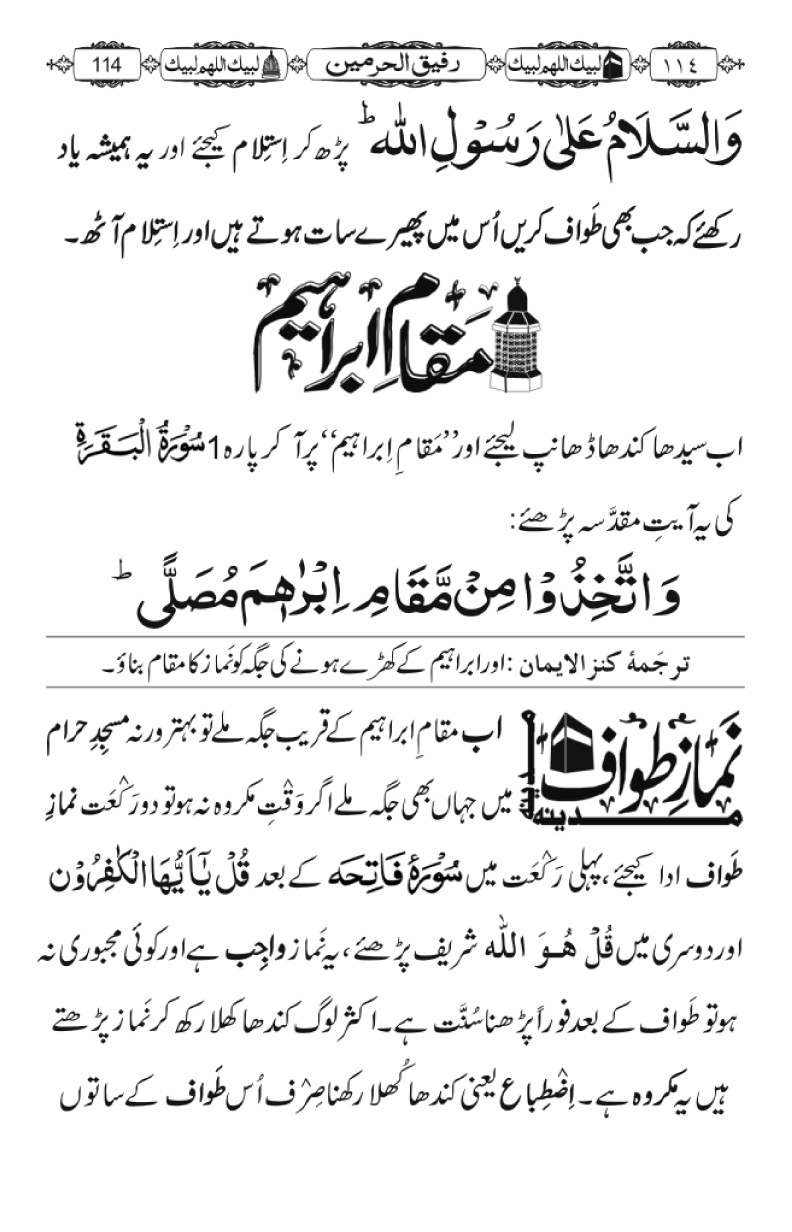 ١١٤ لبیك اللھم لبیك رفیق الحرمین لبیك اللھم لبیك 114
وَالسَّلَامُ عَلٰی رَسُوْلِ اللّٰہ ؕ پڑھ کر اِستِلام کیجئے اور یہ ہمیشہ یاد
رکھئے کہ جب بھی طَواف کریں اُس میں پھیرے سات ہوتے ہیں اور اِستِلام آٹھ۔
مَقَامِ اِبراہیم
اب سیدھا کندھا ڈھانپ لیجئے اور ’’مَقامِ اِبراہیم‘‘ پر آ کر پارہ 1 سُوْرَۃُ الْبَقَرَۃِ
کی یہ آیتِ مقدَّسہ پڑھئے:
وَاتَّخِذُوْا مِنْ مَّقَامِ اِبْرٰھٖمَ مُصَلًّی ؕ
ترجَمۂ کنز الایمان : اور ابراہیم کے کھڑے ہونے کی جگہ کو نَماز کا مقام بناؤ۔
نَمازِ طَواف
مدینہ مدینہ
اب مقامِ ابراہیم کے قریب جگہ ملے تو بہتر ورنہ مسجِدِ حرام
میں جہاں بھی جگہ ملے اگر وَقْتِ مکروہ نہ ہو تو دو رَکْعَت نمازِ
طَواف ادا کیجئے، پہلی رَکْعَت میں سُوْرَۂ فَاتِحَہ کے بعد قُلْ یٰۤاَیُّهَا الْكٰفِرُوْن
اور دوسری میں قُلْ هُوَ اللّٰه شریف پڑھئے، یہ نَماز واجِب ہے اور کوئی مجبوری نہ
ہو تو طَواف کے بعد فوراً پڑھنا سُنَّت ہے۔ اکثر لوگ کندھا کھلا رکھ کر نَماز پڑھتے
ہیں یہ مکروہ ہے۔ اِضْطِباع یعنی کندھا کُھلا رکھنا صِرْف اُس طَواف کے ساتوں